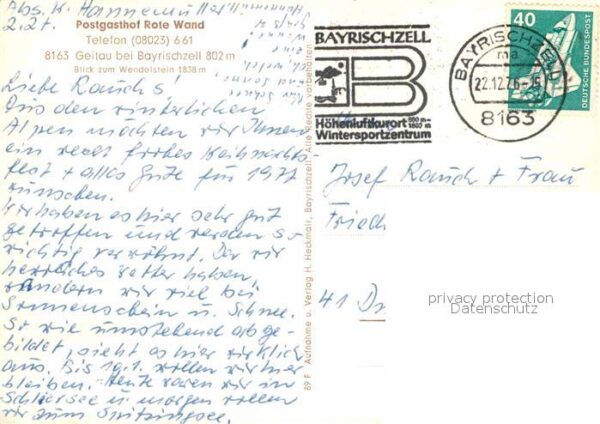 Abs. K. Hannemüller
z. Zt.
Postgasthof Rote Wand
Telefon (08023) 661
8163 Geitau bei Bayrischzell 802 m
Blick zum Wendelstein 1838 m
Liebe Rauch's
Aus den winterlichen
Alpen möchten wir Ihnen
ein recht frohes Weihnachts
fest + alles Gute für 1977
wünschen.
Wir haben es hier sehr gut
getroffen und werden so
richtig verwöhnt. Da wir
herrliches Wetter haben,
wandern wir viel bei
Sonnenschein u. Schnee.
So wie umstehend abge-
bildet, sieht es hier wirklich
aus. Bis 19.1. wollen wir hier
bleiben. Heute waren wir in
Schliersee u. morgen wollen
wir zum Spitzingsee.
89 F Aufnahme u. Verlag H. Heckmair, Bayrischzell. Alle Rechte vorbehalten
BAYRISCHZELL
B
Höhenluftkurort 800 m-
1800 m
Wintersportzentrum
BAYRISCHZELL
ma
22.12.76-15
8163
40
DEUTSCHE BUNDESPOST
Josef Rauch + Frau
Fried
41 Du
privacy protection
Datenschutz